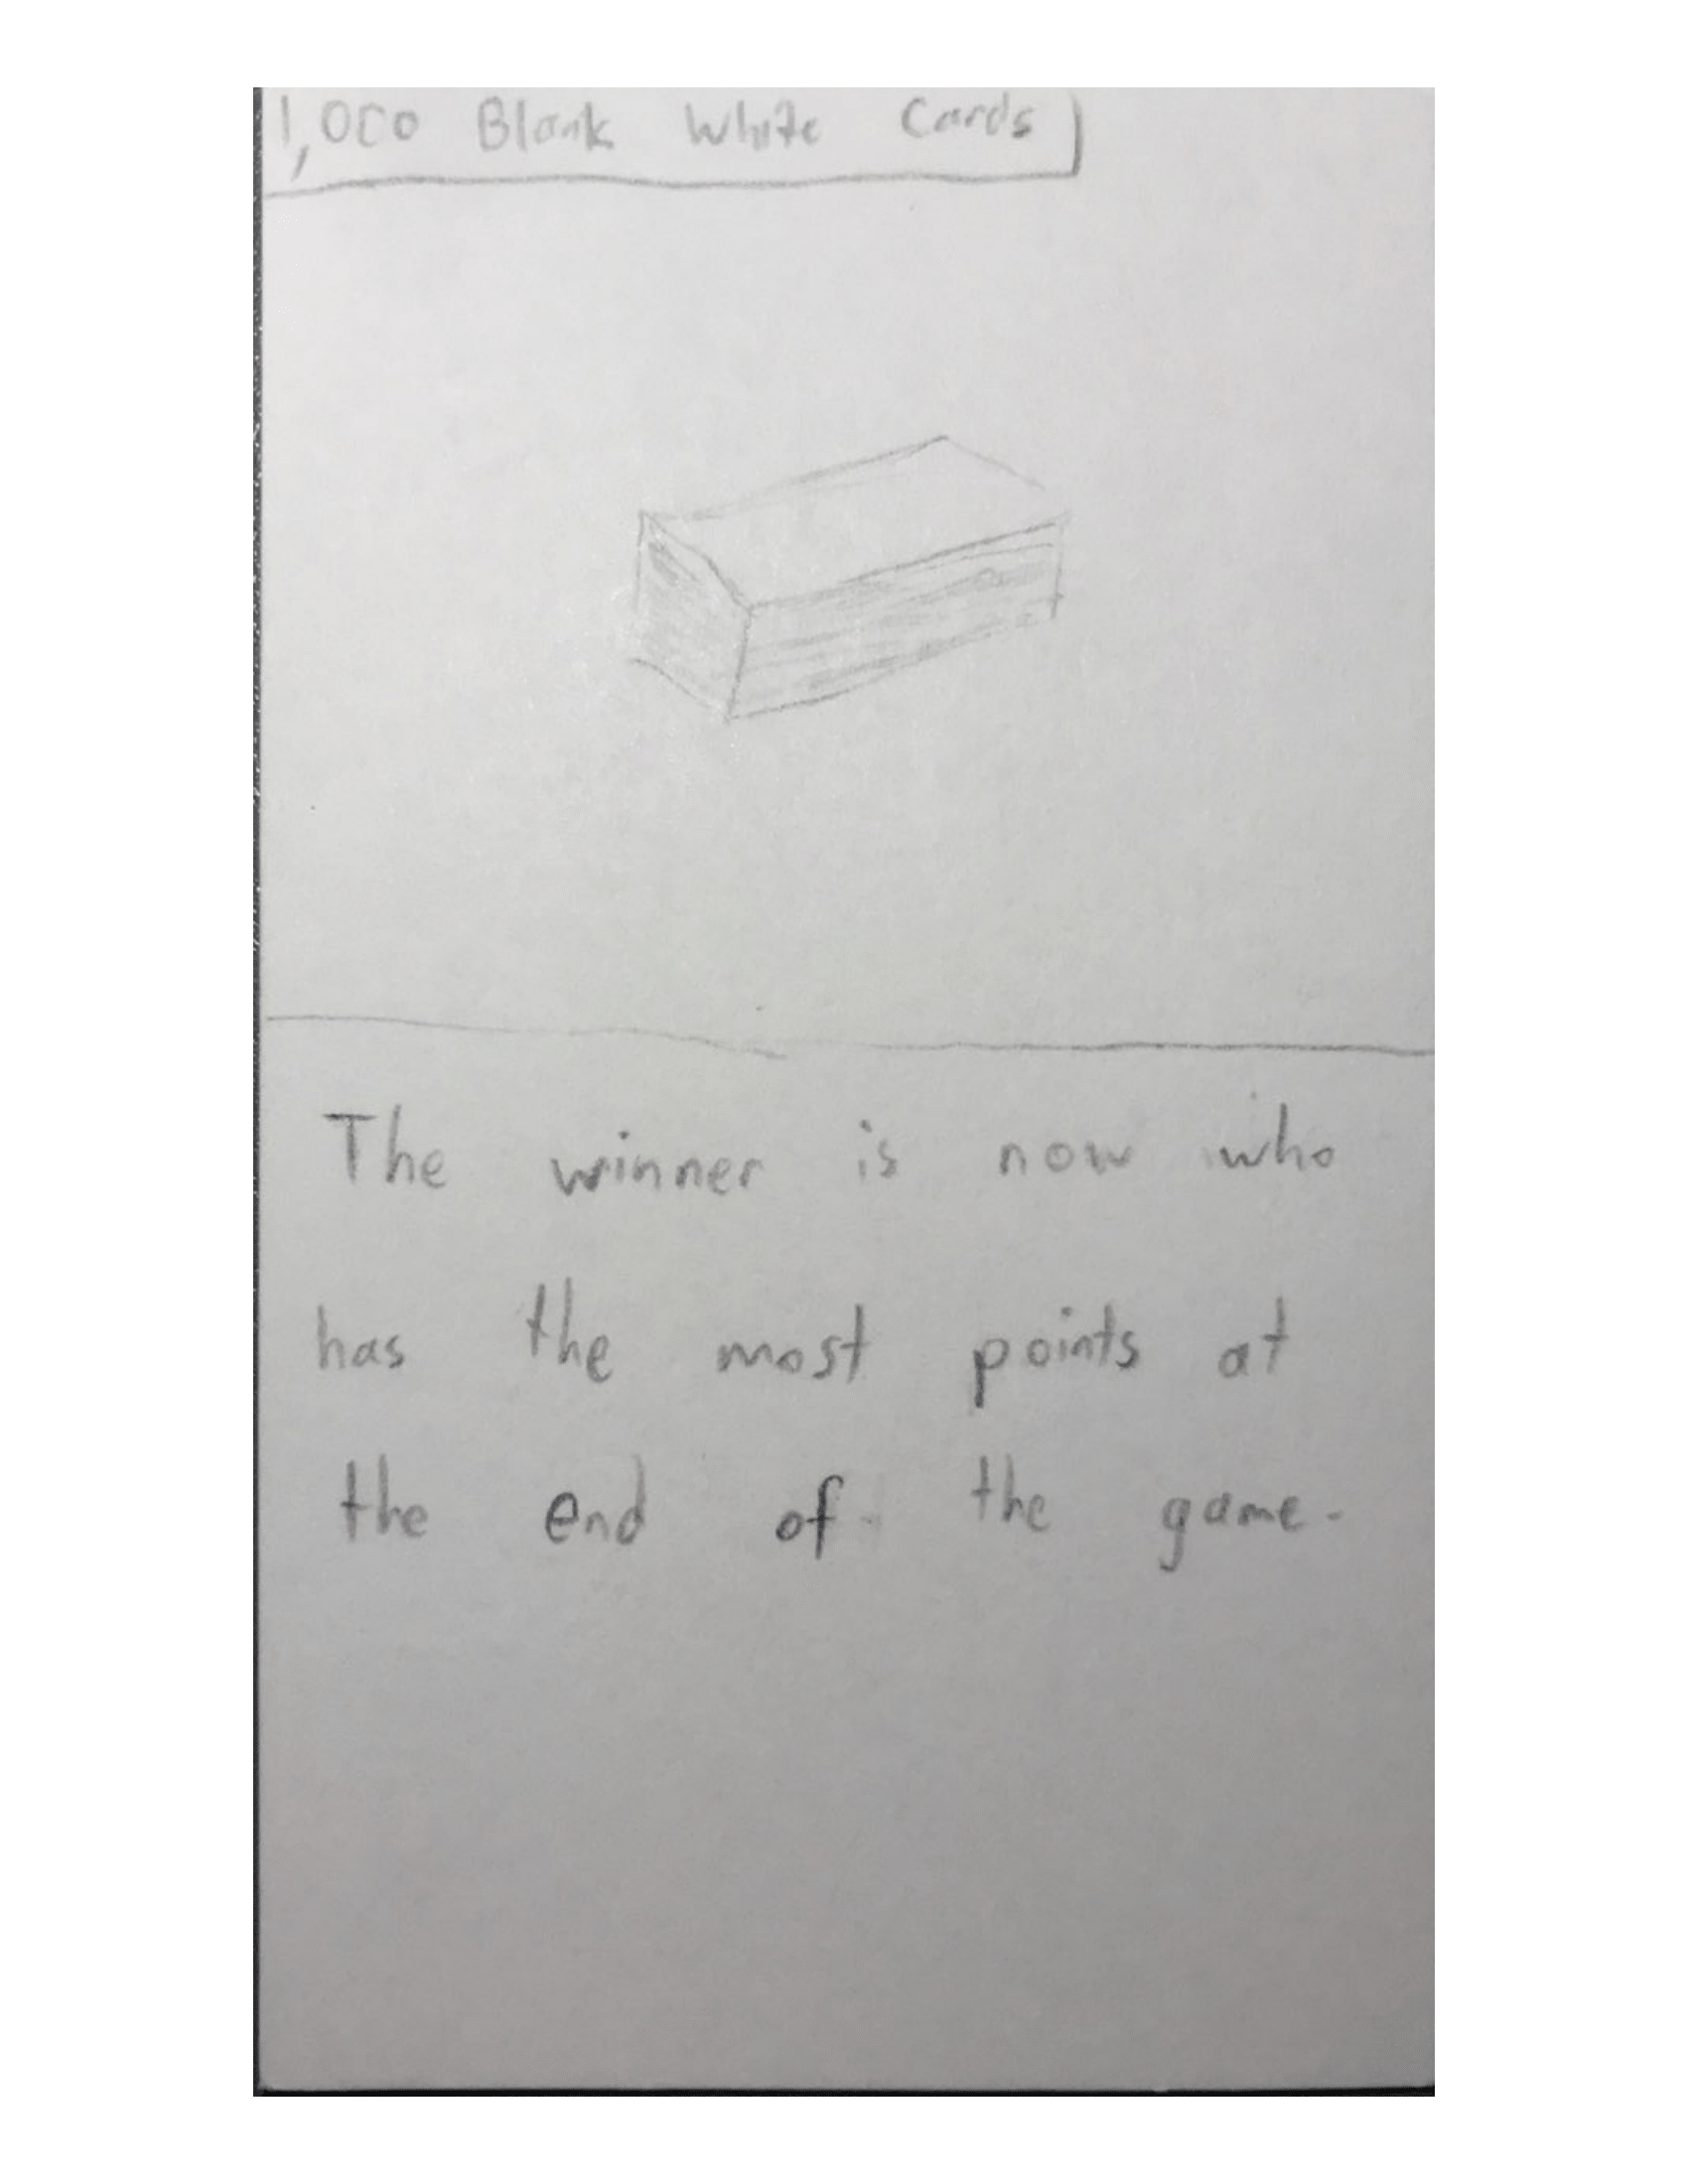 1,000 Blank White Cards
The winner is now who
has the most points at
the end of the game.